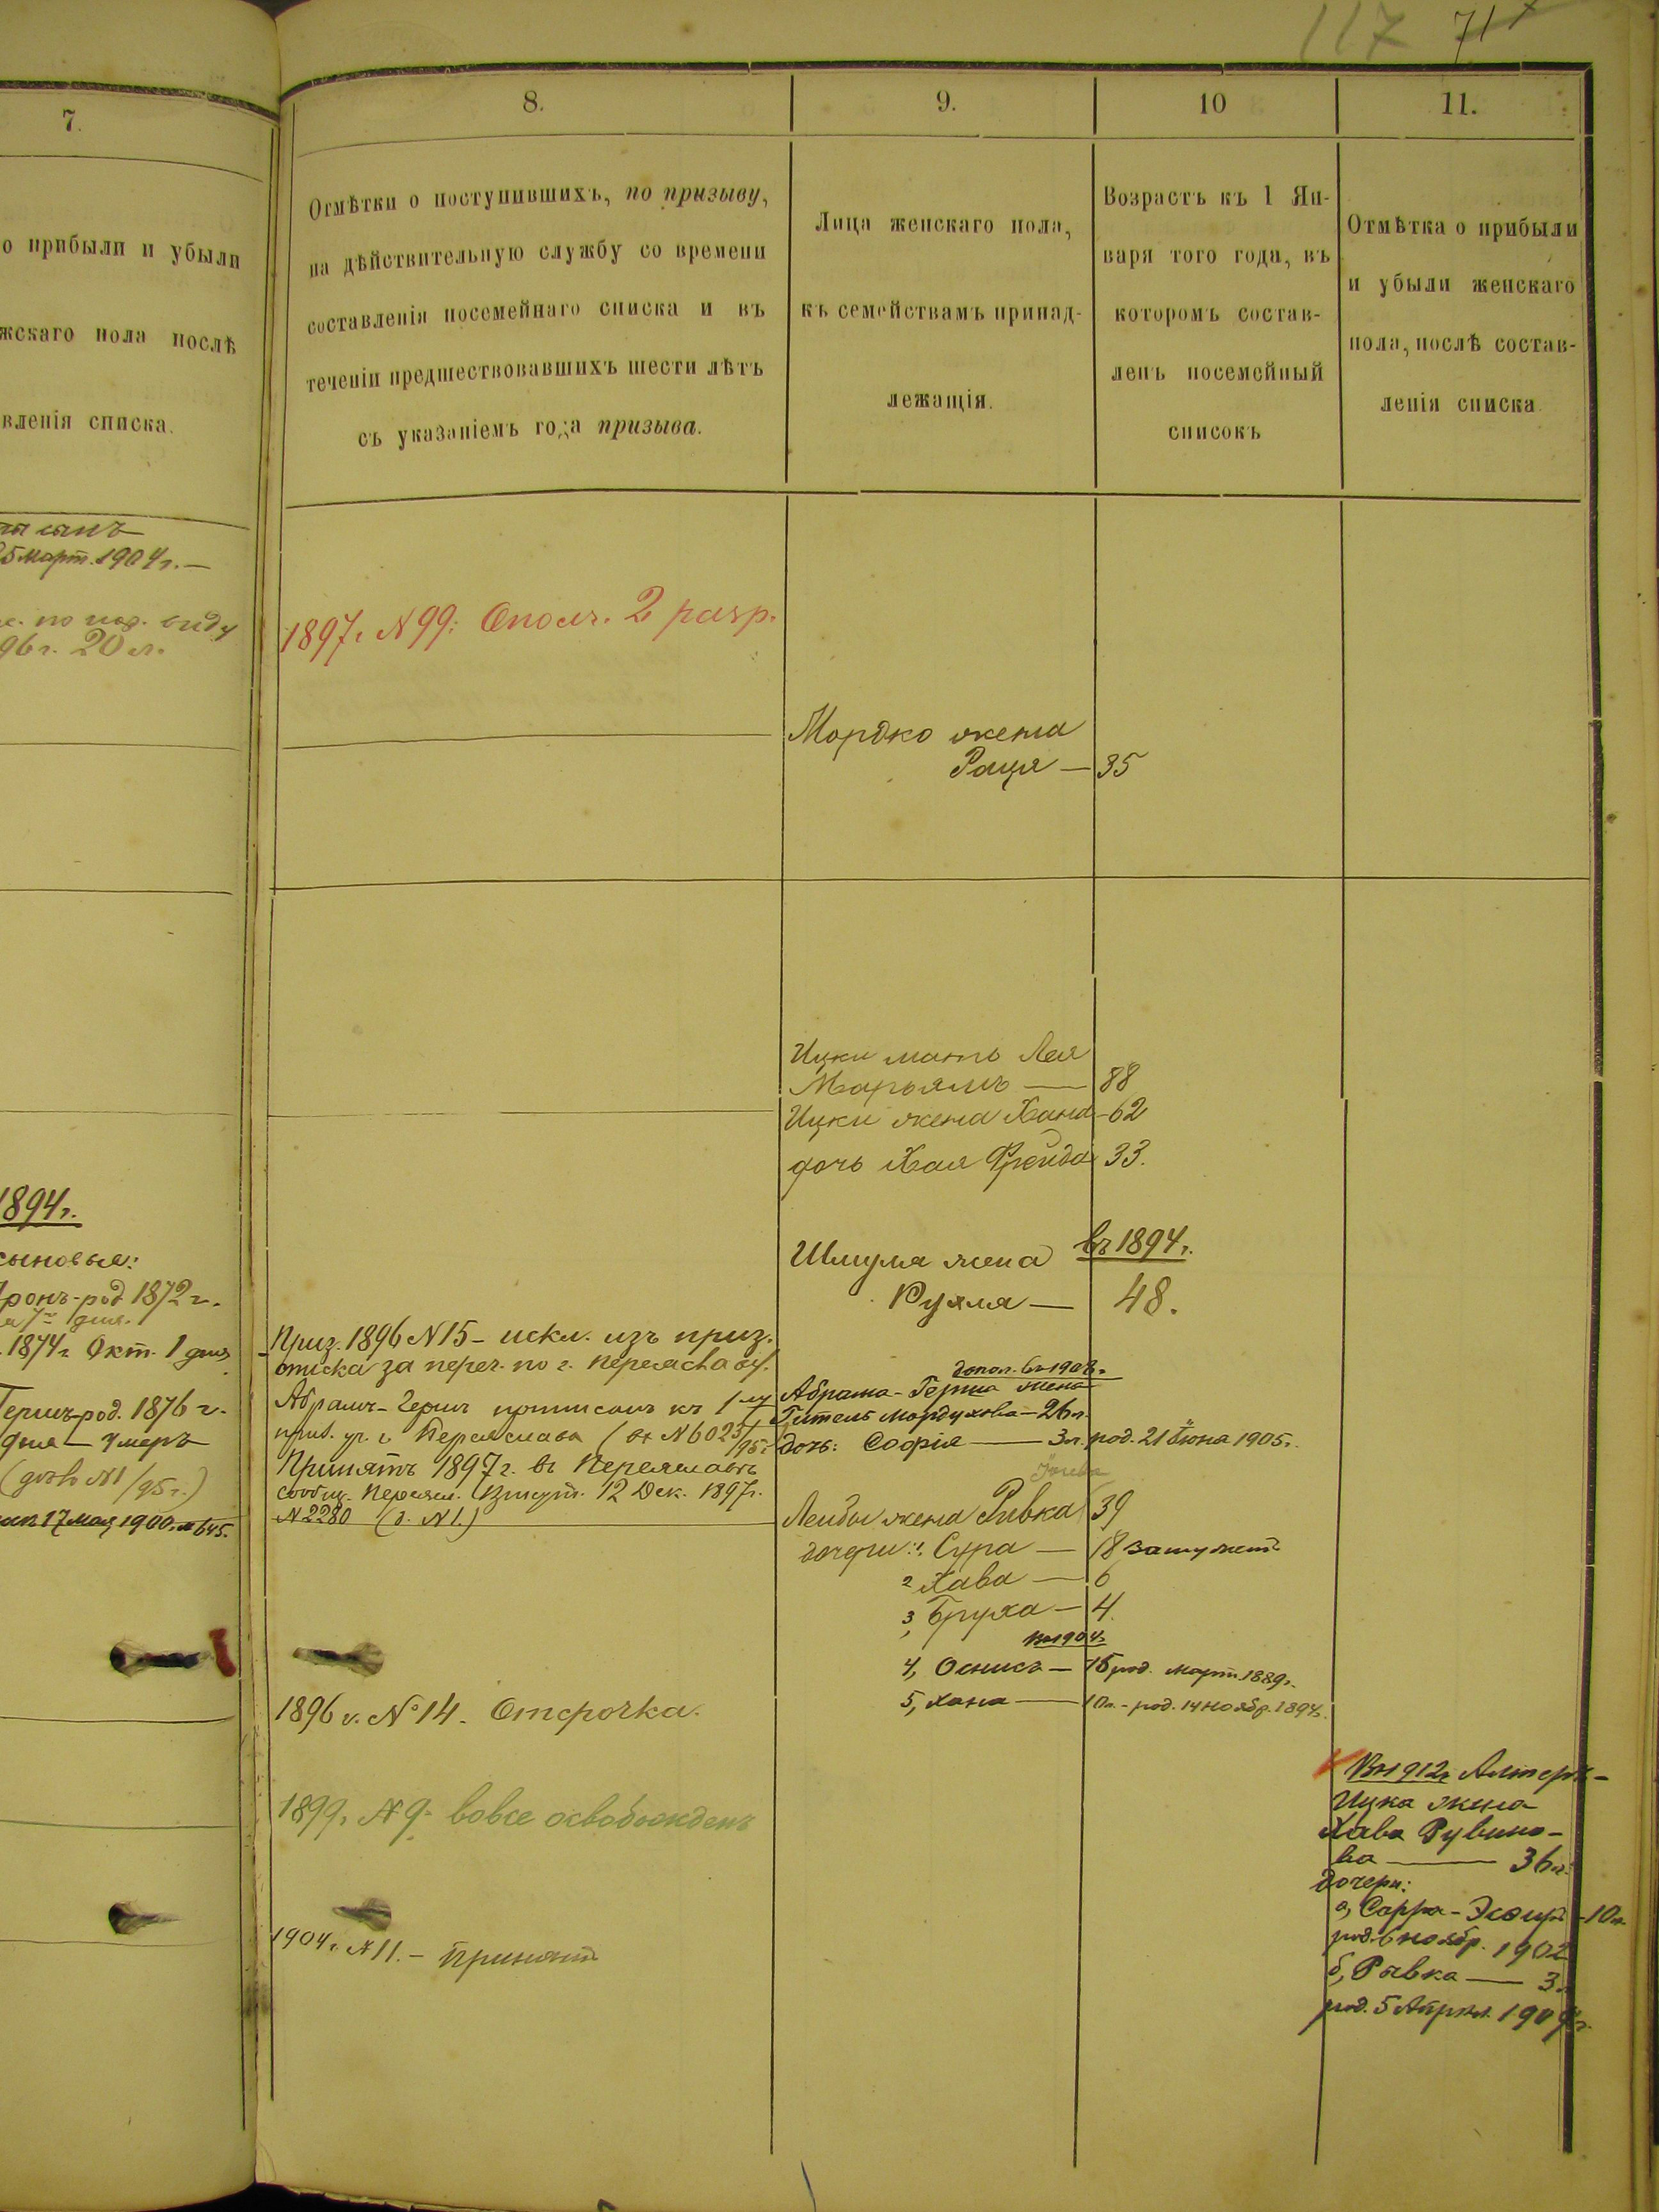 117 71
7.
о прибыли и убыли
жскаго пола послѣ
вленія списка.
сынъ
25 март. 1904 г. —
по нар. виду
96 г. 20 л.
1894 г.
сыновья:
род. 1872 г.
дня.
1874 г. Окт. 1 дня
Герш- род. 1876 г.
дня — умеръ
№ 1/95 г.)
17 мая 1900. № 645.
8.
Отмѣтки о поступившихъ, по призыву,
на дѣйствительную службу со времени
составленія посемейнаго списка и въ
теченіи предшествовавшихъ шести лѣтъ
съ указаніемъ года призыва.
1897 г. № 99: Ополч. 2 разр.
Приз. 1896 № 15 - искл. изъ приз.
списка за переч. по г. Переяславу.
Абрамъ-Герш приписанъ къ 1 му
приз. уч. г. Переяслава (вх № 6023/95 г.
Принятъ 1897 г. въ Переяславѣ
сообщ. Переясл. 12 Дек. 1897 г.
№ 2280 (д. № 1.)
1896 г. № 14. Отсрочка.
1899 г. № 9 - вовсе освобожденъ
1904 г. № 11. - Принятъ
9.
Лица женскаго пола,
къ семействамъ принад-
лежащія.
10
Возрастъ къ 1 Ян-
варя того года, въ
которомъ состав-
ленъ посемейный
списокъ
11.
Отмѣтка о прибыли
и убыли женскаго
пола, послѣ состав-
ленія списка
Мордко жена
Рація — 35
Ицки мать Лея
Марьямъ — 88
Ицки жена Хана - 62
дочь Хая Фрейда 33.
въ 1894 г.
Шмуля жена
Рухля — 48.
допол. въ 1908 г.
Абрама-Герша жена
Гитель Мордухова — 26 л.
дочь: Софія — 3 л. род. 21 Іюня 1905 г.
Лейбы жена Ривка 39
дочери: 1, Сура — 18 замужемъ
2 Хава — 6
3, Бруха — 4.
въ 1904 г.
4, Оснисъ — 15 род. март. 1889 г.
5, Хана — 10 л. - род. 14 Ноябр. 1894 г.
Въ 1912 г. Алтеръ-
Ицка жена
Хава Рувино-
ва — 36 л.
дочери:
а, Сарра-Эсфирь - 10 л.
род. 6 ноябр. 1902
б, Рывка — 3 л.
род. 5 Апрѣл. 1909 г.